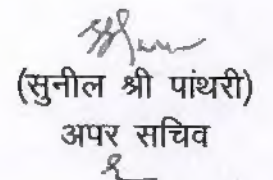 (सुनील श्री पांथरी)
अपर सचिव